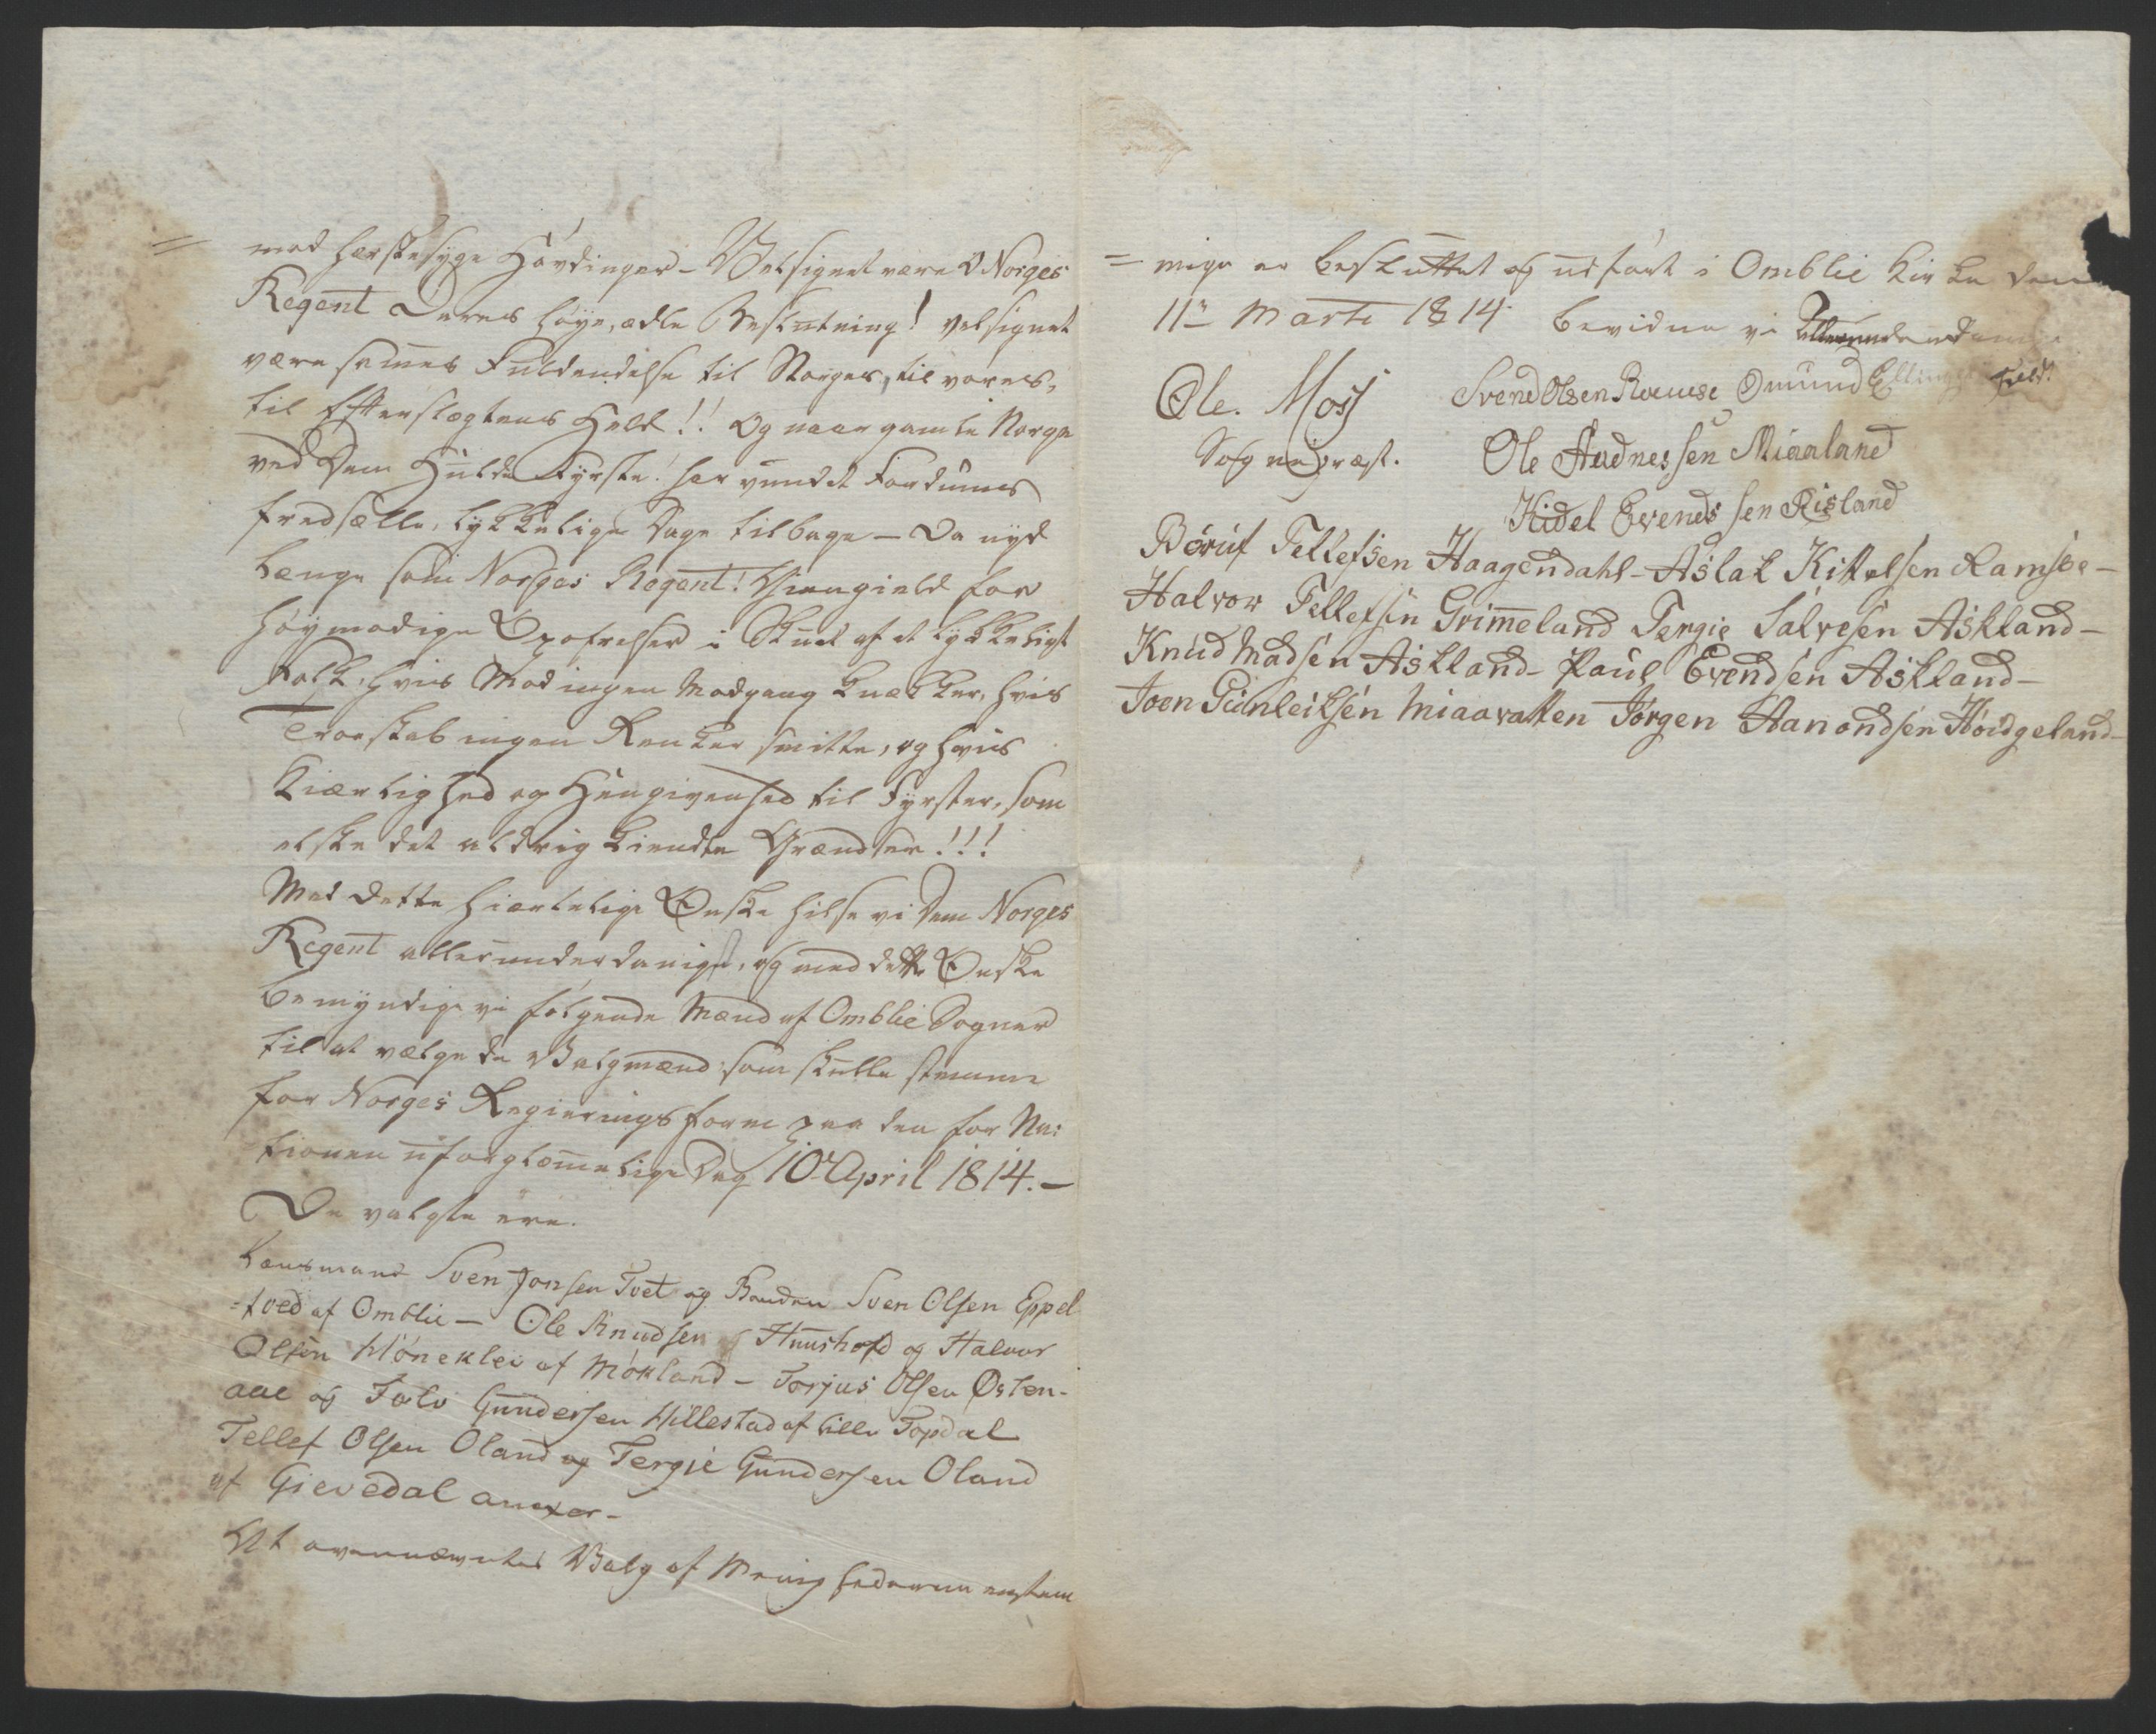 = med herskesyge Høvdinger – Velsignet være O Norges
Regent Deres høye, ædle Beslutning! velsignet
være sammes Fuldendelse til Norges, til vores,
til Efterslægtens Held!! Og naar gamle Norge
ved Dem Hulde Fyrste! har vundet Fordums
fredsælle, lykkelige Dage tilbage – Da nyd
længe som Norges Regent! Giengield for
høymodige Opofrelser i Skuet af et lykkeligt
Folk, hvis Mod ingen Modgang knækker, hvis
Troeskab ingen Renker smitte, og hvis
Kiærlighed og Hengivenhed til Fyrster, som
elske det aldrig kiendte Grændser!!!
Med dette hiertelige Ønske hilse vi Dem Norges
Regent allerunderdanigst, og med dette Ønske
bemyndige vi følgende Mænd af Omblie Sogner
til at vælge de Valgmænd som skulle stemme
for Norges Regieringsform paa den for Na:
tionen uforglemmelige Dag 10 April 1814. –
De valgte ere.
Lænsmand Sven Jonsen Tvet og Bonden Sven Olsen Eppel
=toed af Omblie – Ole Knudsen Huushold og Halvor
Olsen Høneklev af Møkland – Torjus Olsen Østen-
aae og Salv Gundersen Hillestad af lille Topdal
Tellef Olsen Oland og Tergie Gundersen Oland
af Gievedal annexer –
At ovennævnte Valg af Menighederne enstem
= mige er besluttet og udført i Omblie Kirke den
11te Marti 1814 bevidne vi
Ole. Moss Svend Olsen Omund
Sognepræst. Ole Audnessen Miaaland
Kidel Evendssen Risland
Børuf Tellefsen Haagendahl – Aslak Kittelsen Ramsee –
Halvor Tellefsen Grimmeland Tergie Salvesen Askland –
Knud Madsen Askland – Paul Evendsen Askland –
Joen Gunleiksen Miaavatten Jørgen Aanondsen Høidgeland –